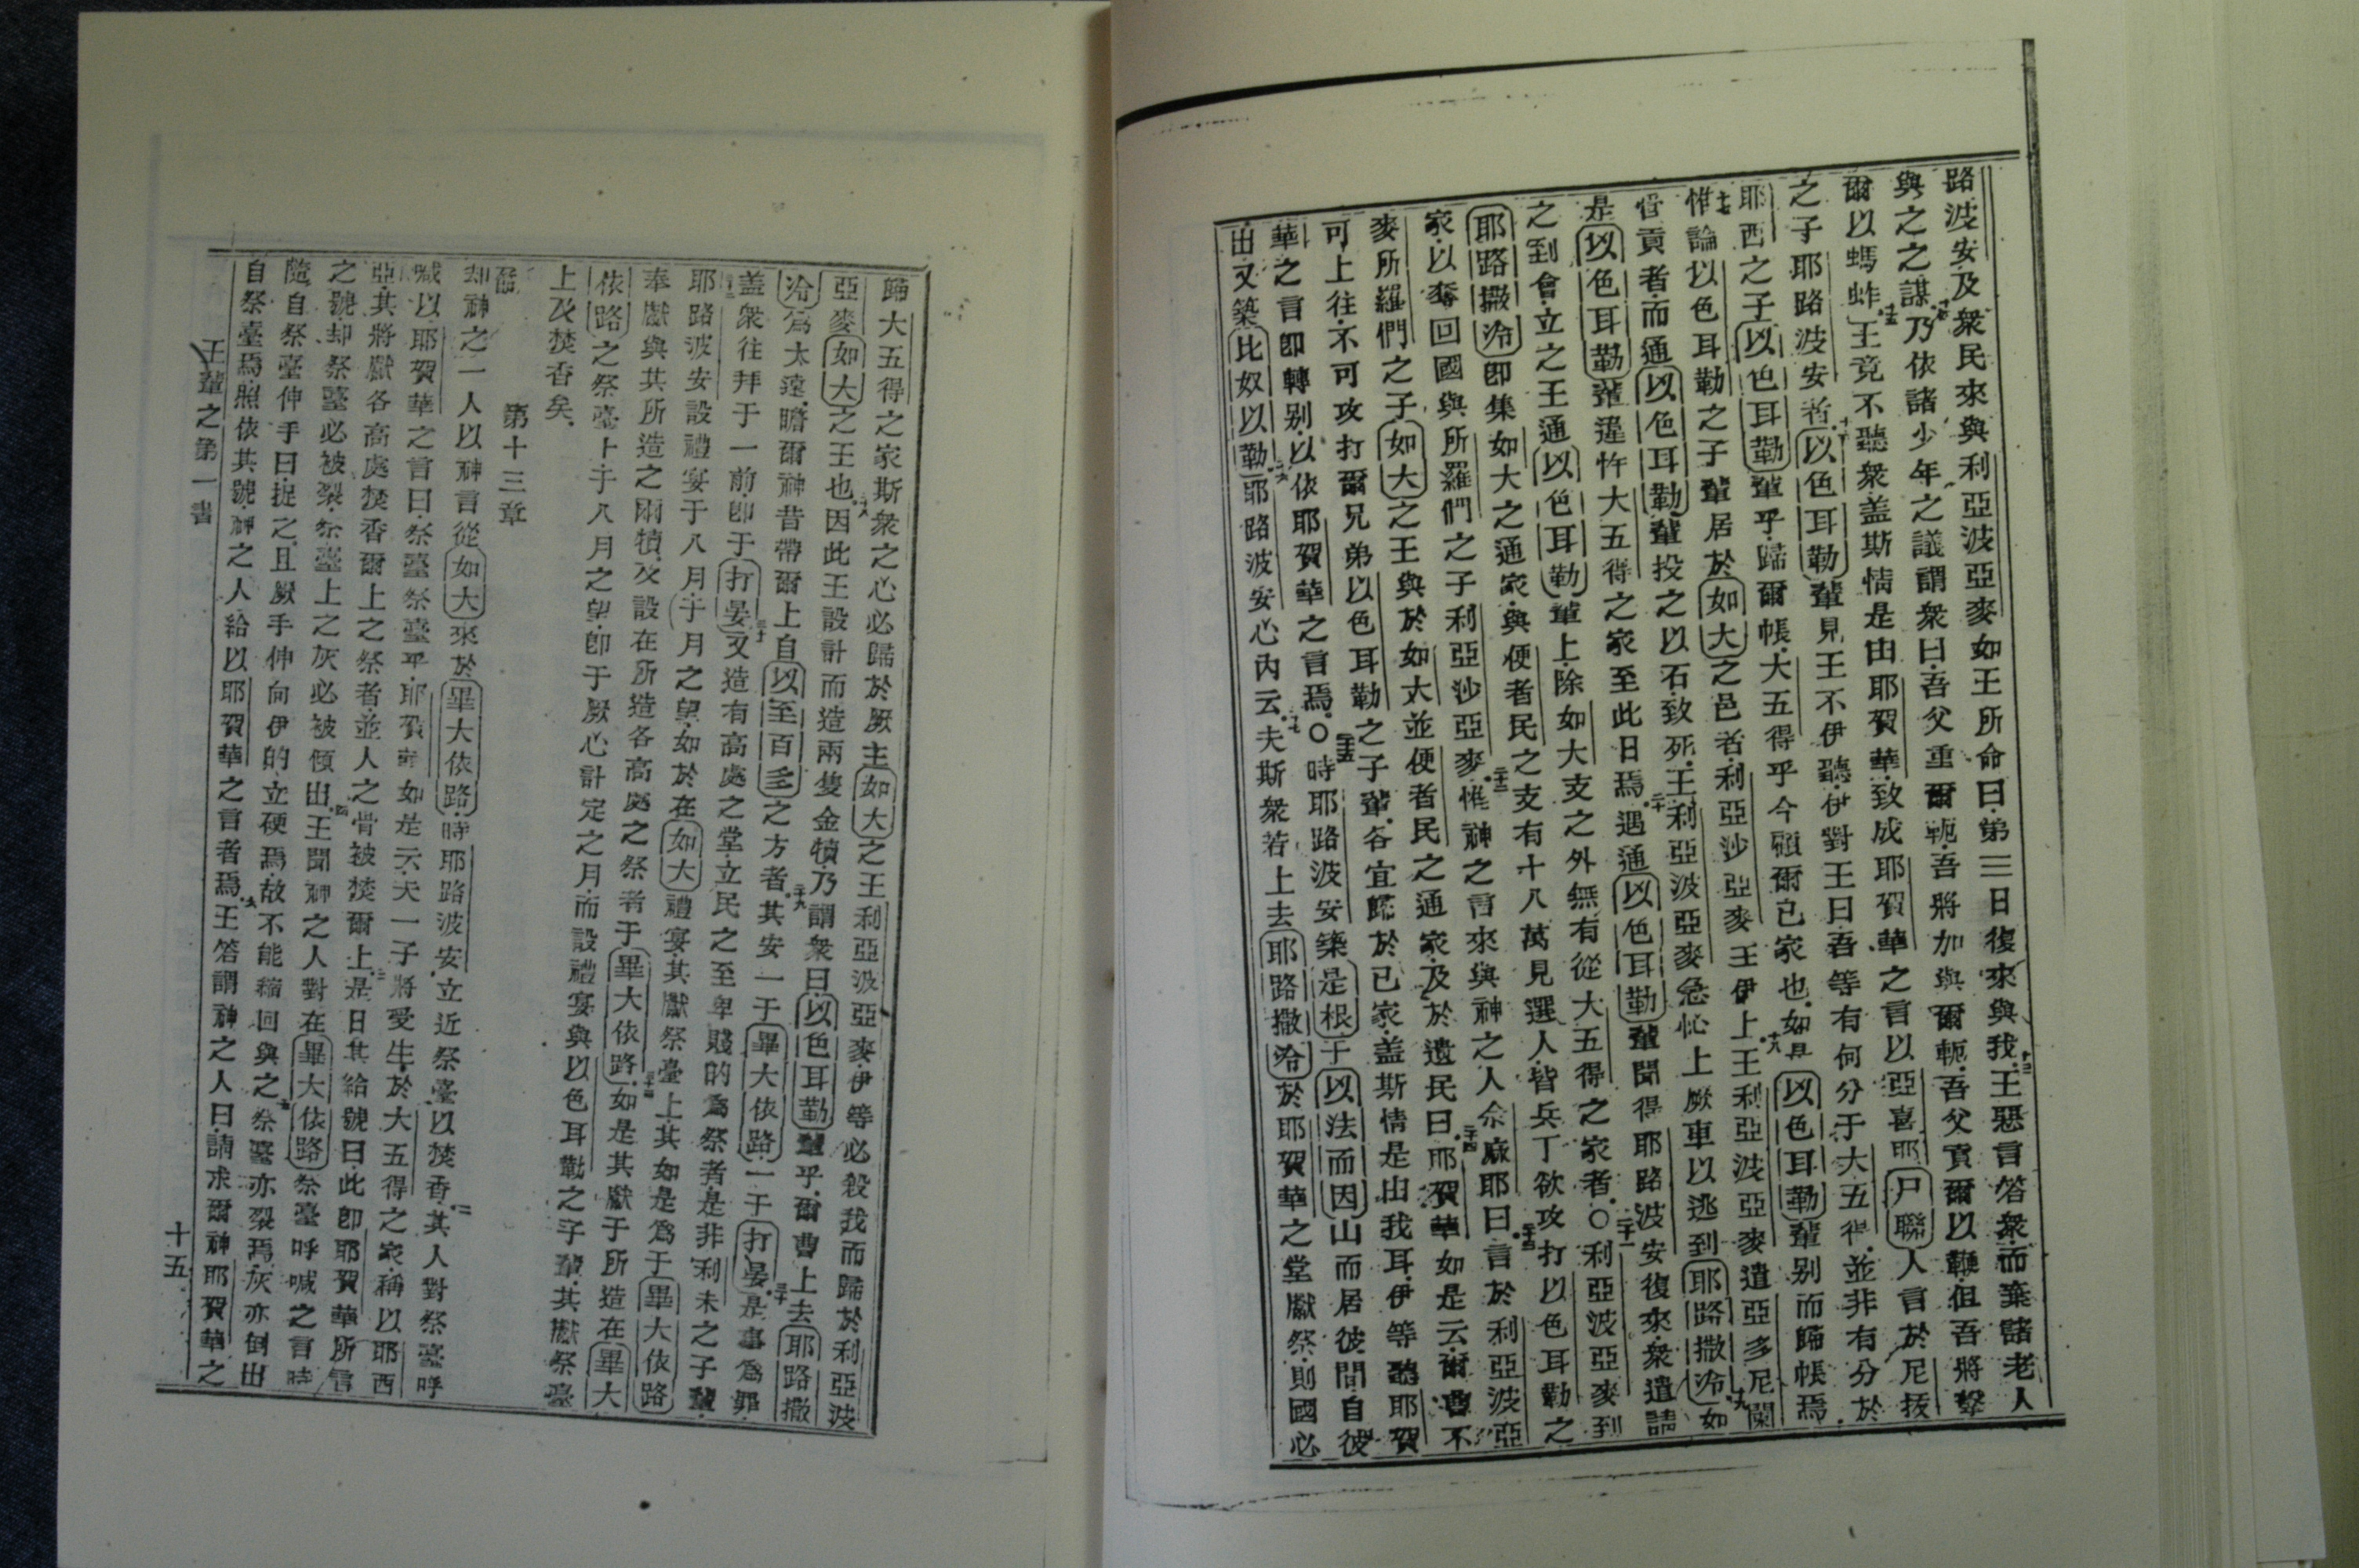 路波安及衆民來與利亞波亞麥如王所命曰第三日復來與我王惡言答衆而棄諸老人
與之之謀乃依諸少年之議謂衆曰吾父重爾軛吾將加與爾軛吾父責爾以鞭但吾將擊
爾以螞蚱王竟不聽衆盖斯情是由耶賀華致成耶賀華之言以亞喜耶尸聯人言於尼抜
之子耶路波安者以色耳勒輩見王不伊聽伊對王曰吾等有何分于大五得並非有分於
耶西之子以色耳勒輩乎歸爾帳大五得乎今顧爾已家也如是以色耳勒輩别而歸帳焉
惟論以色耳勒之子輩居於如大之邑者利亞沙亞麥王伊上王利亞波亞麥遣亞多尼闌
貢者而通以色耳勒輩投之以石致死王利亞波亞麥急忙上厥車以逃到耶路撒冷如
是以色耳勒輩違忤大五得之家至此日焉遇通以色耳勒輩聞得耶路波安復來衆遣請
之到會立之王通以色耳勒輩上除如大支之外無有從大五得之家者〇利亞波亞麥到
耶路撒冷即集如大之通家與便者民之支有十八萬見選人皆兵丁欲攻打以色耳勒之
家以奪回國與所羅們之子利亞沙亞麥惟神之言來與神之人佘麻耶曰言於利亞波亞
麥所羅們之子如大之王與於如大並便者民之通家及於遺民曰耶賀華如是云爾曹不
可上往不可攻打爾兄弟以色耳勒之子輩各宜歸於已家盖斯情是由我耳伊等聽耶賀
華之言即轉别以依耶賀華之言焉〇時耶路波安築是根于以法而因山而居彼間自彼
出又築比奴以勒耶路波安心內云夫斯衆若上去耶路撒冷於耶賀華之堂獻祭則國必
歸大五得之家斯衆之心必歸於厥主如大之王利亞波亞麥伊等必殺我而歸於利亞波
亞麥如大之王也因此王設計而造兩隻金犢乃謂衆曰以色耳勒輩乎爾曹上去耶路撒
冷爲太遠瞻爾神昔帶爾上自以至百多之方者其安一于畢大依路一于打晏是事爲罪
盖衆往拜于一前卽于打晏又造有高處之堂立民之至卑賤的爲祭者是非利未之子輩
耶路波安設禮宴于八月于月之望如於在如大禮宴其獻祭臺上其如是爲于畢大依路
奉獻與其所造之兩犢及設在所造各高處之祭者于畢大依路如是其獻于所造在畢大
依路之祭臺上于八月之望卽于厥心計定之月而設禮宴與以色耳勒之子輩其獻祭臺
上及焚香矣
第十三章
却神之一人以神言從如大來於畢大依路時耶路波安立近祭臺以焚香其人對祭臺呼
喊以耶賀華之言曰祭臺祭臺乎耶賀華如是云夫一子將受生於大五得之家稱以耶西
亞其將獻各高處焚香爾上之祭者並人之骨被焚爾上是日其給號曰此卽耶賀華所言
之號却祭臺必被裂祭臺上之灰必被傾出王聞神之人對在畢大依路祭臺呼喊之言時
隨自祭臺伸手曰捉之且厥手伸向伊的立硬焉故不能縮回與之祭臺亦裂焉灰亦倒出
自祭臺焉照依其號神之人給以耶賀華之言者焉王答謂神之人曰請求爾神耶賀華之
王輩之第一書
十五